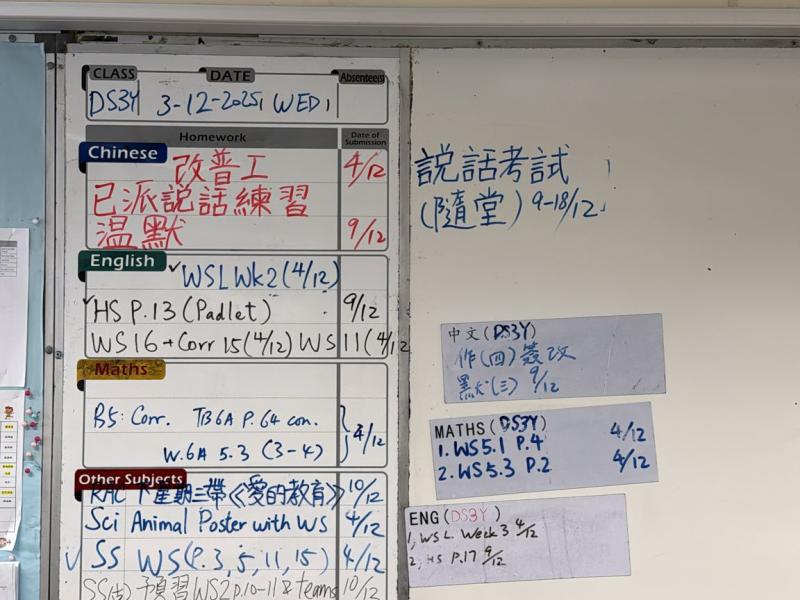 CLASS DATE Absentee(s)
DS3Y 3-12-2025, WED,
Homework Date of Submission
Chinese
改普工 4/12
已派説話練習
溫默 9/12
English
✓WSL Wk2 (4/12)
✓HS P.13 (Padlet) 9/12
WS 16 + Corr 15 (4/12) WS 11 (4/12
Maths
R5: Corr. TB6A P. 64 con.
W.6A 5.3 (3-4) 4/12
Other Subjects
RAC 下星期三帶《愛的教育》 10/12
Sci Animal Poster with WS 4/12
✓ SS WS (P. 3, 5, 11, 15) 4/12
預習 WS2 p.10-11 & teams 10/12
説話考試
(隨堂) 9-18/12
中文(DS3Y)
作(四)簽改
默(三) 9/12
MATHS (DS3Y)
1. WS 5.1 P.4 4/12
2. WS 5.3 P.2 4/12
ENG (DS3Y)
1, WS L Week 3 4/12
2, HS P.17 9/12